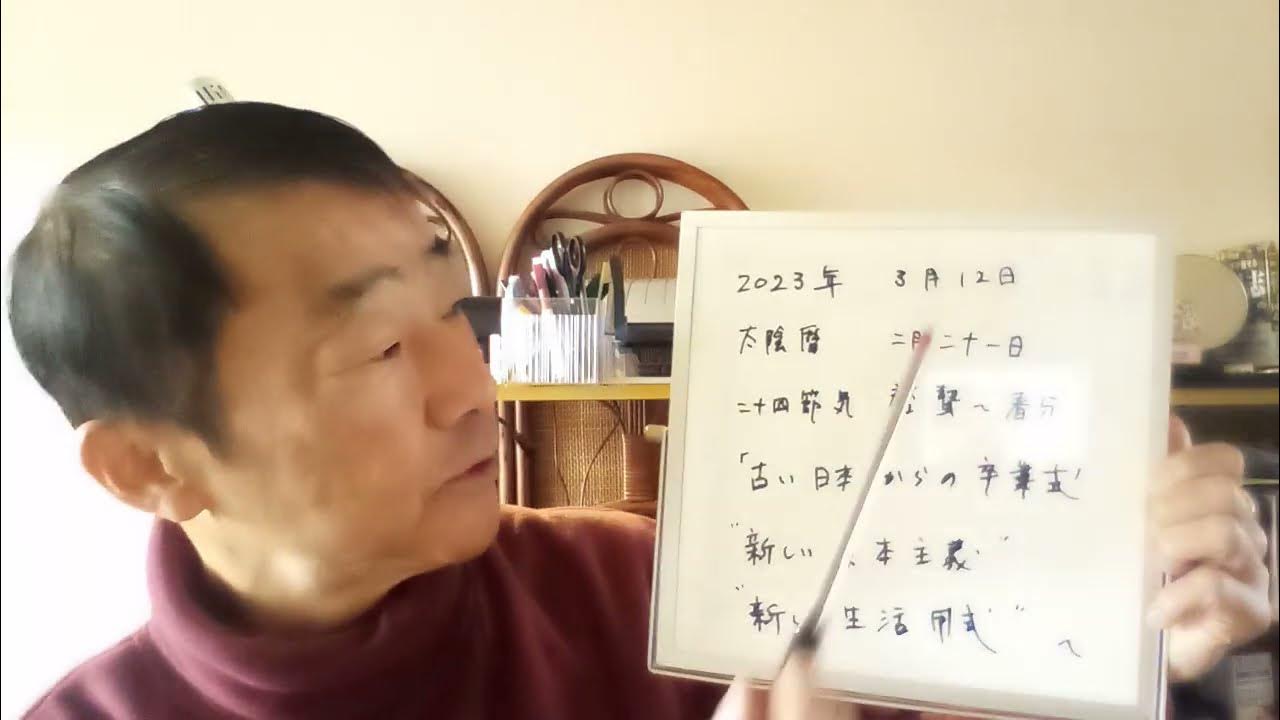 2023年 3月12日
太陰暦 二月二十一日
二十四節気 啓蟄〜春分
「古い日本からの卒業式」
"新しい 本主義"
"新し 生活用式" へ